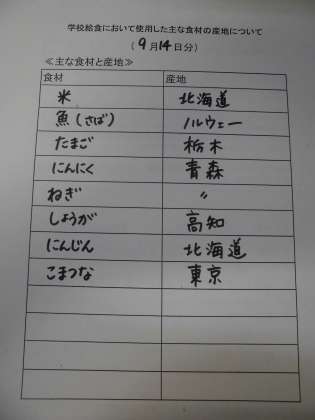 学校給食において使用した主な食材の産地について
(9月14日分)
≪主な食材と産地≫
食材 産地
米 北海道
魚(さば) ノルウェー
たまご 栃木
にんにく 青森
ねぎ 〃
しょうが 高知
にんじん 北海道
こまつな 東京